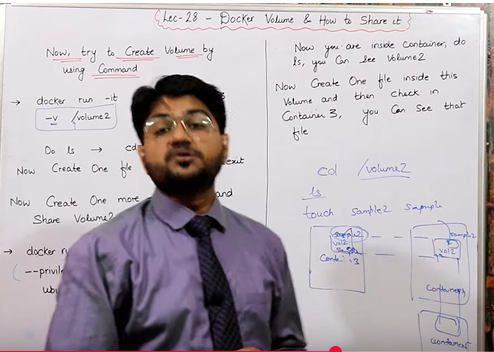 Lec-28 - Docker Volume & How to Share it
Now, try to Create Volume by
using Command
→ docker run -it
3
-v /volume2
Do ls → cd
Now Create One file
exit
Now Create One more
and
Share Volume2
→ docker ru
(--privile
ubu
Now you are inside Container, do
ls, you Can See Volume2
Now Create One file inside this
Volume and then check in
Container 3, you Can See that
file
cd /volume2
ls
touch sample2 sample1
sample2
vol2
Conta 3
sample2
vol2
Container4
Container5